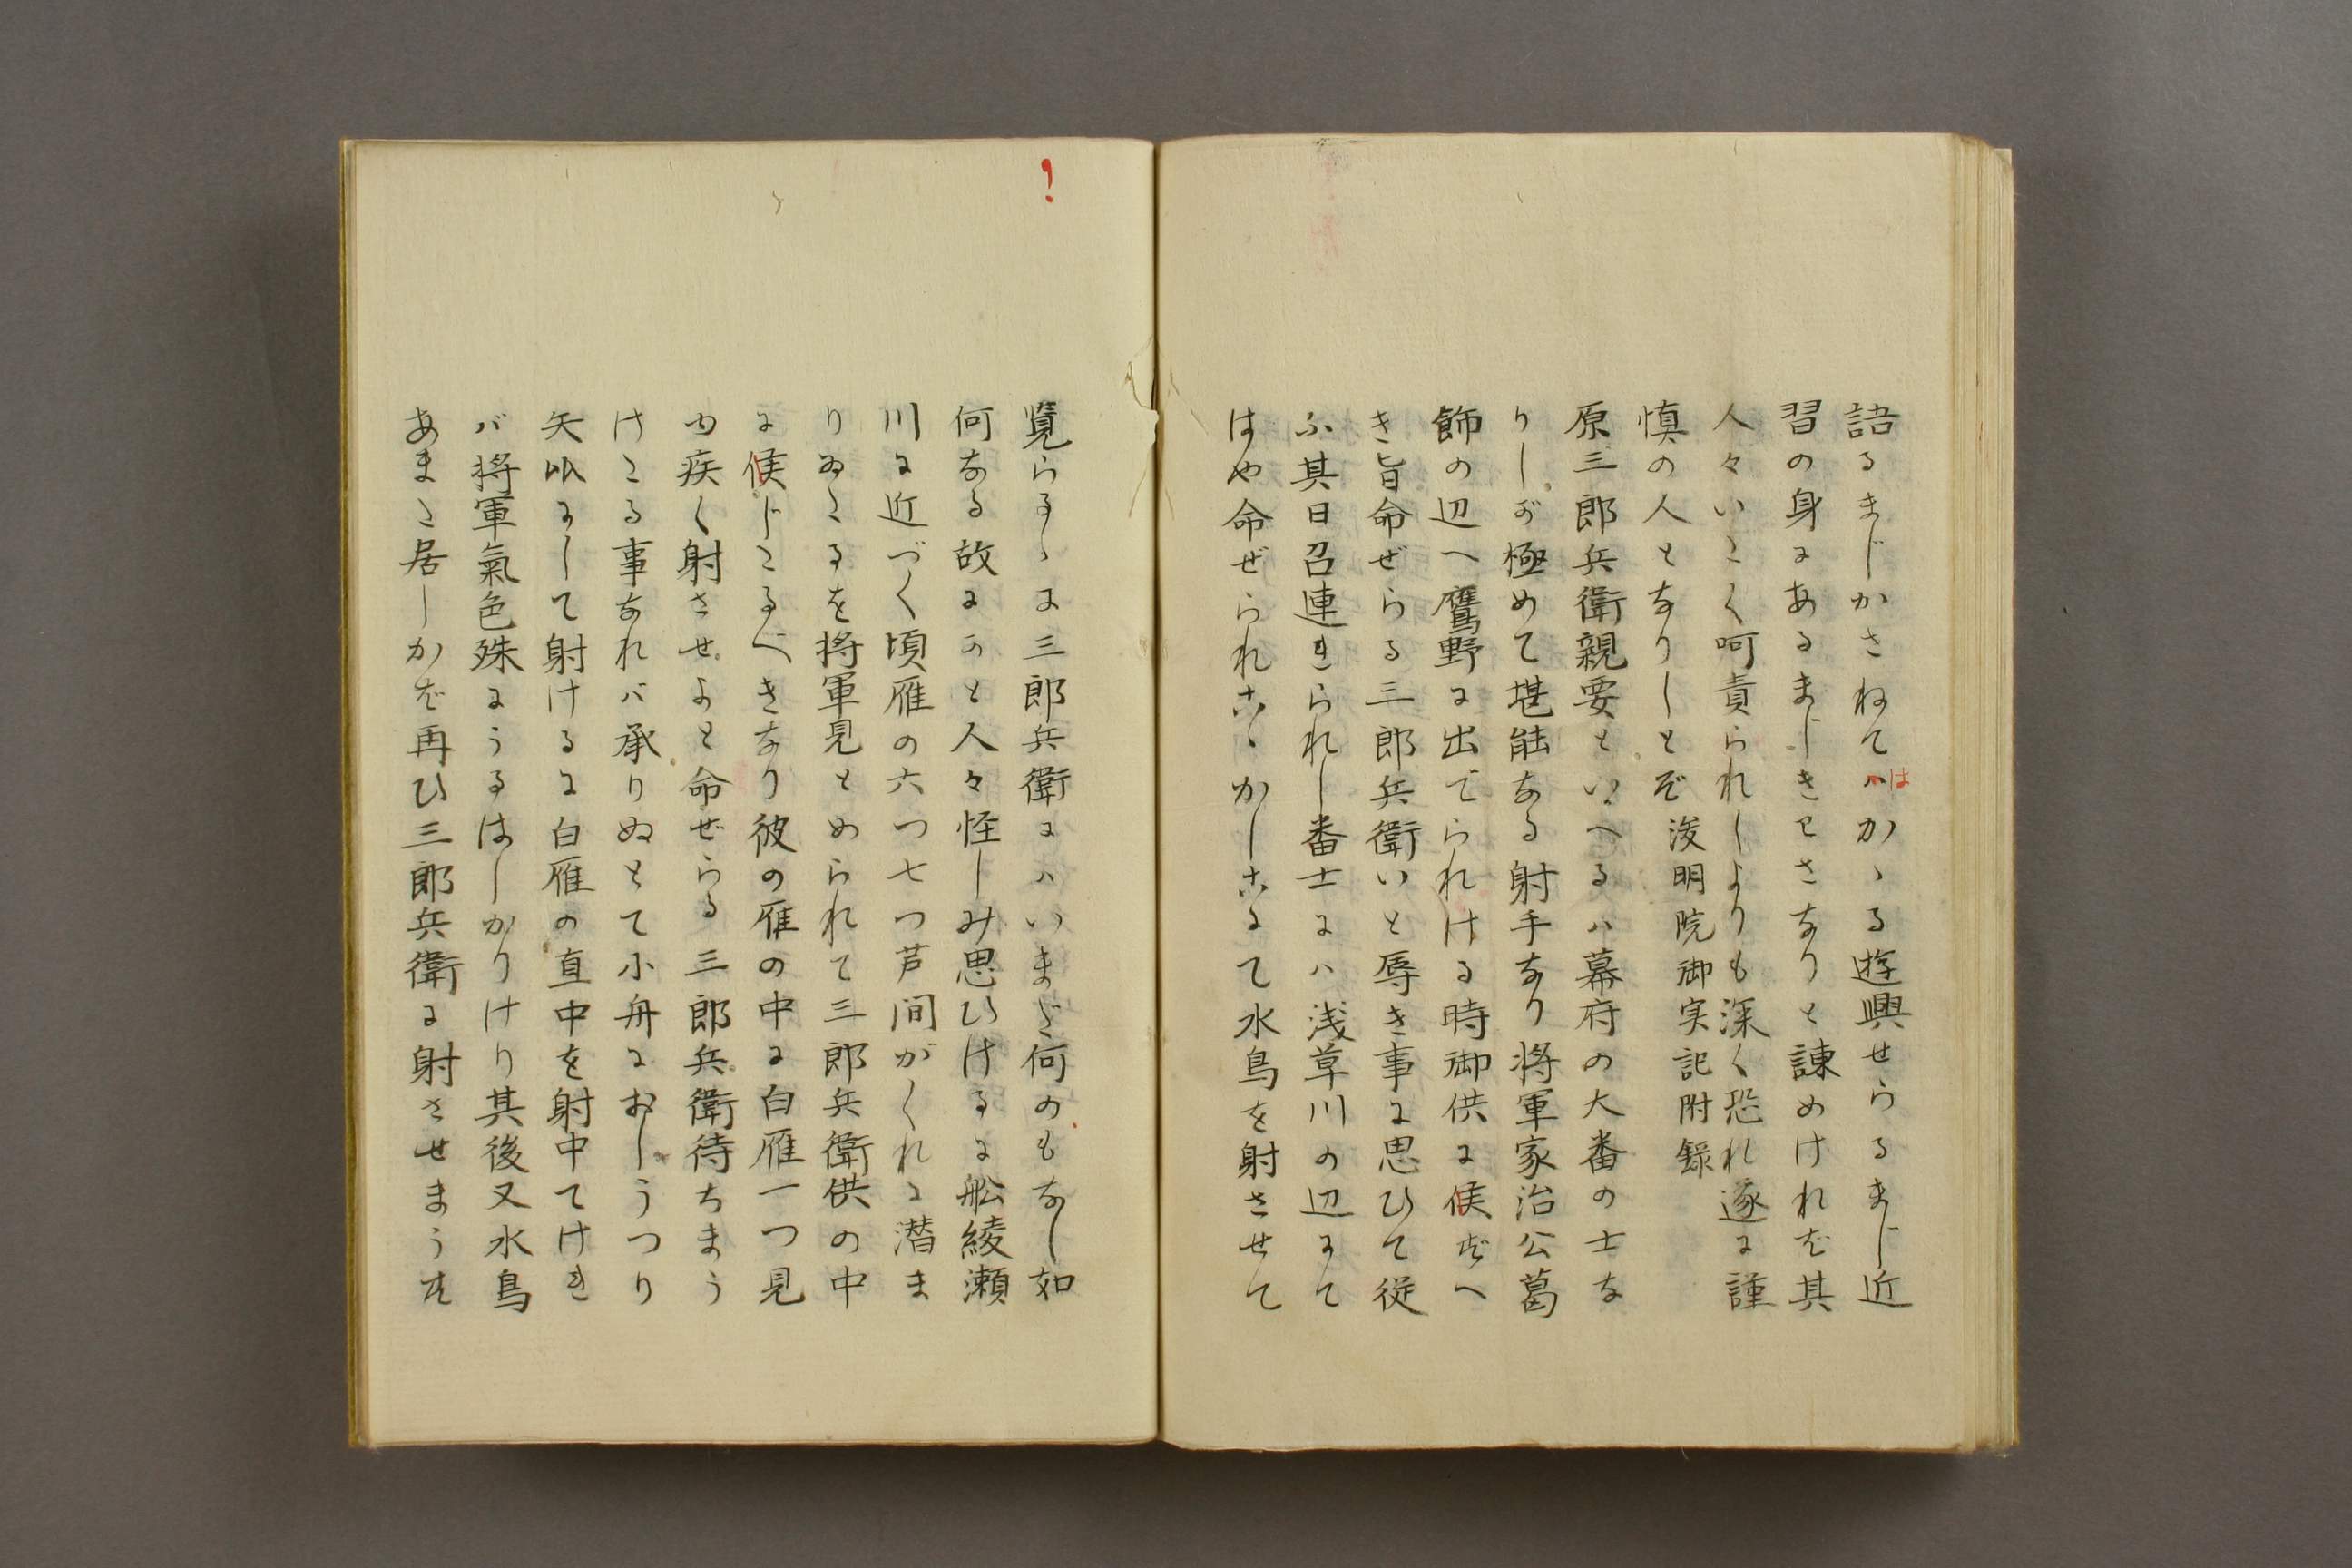 語るまじかさねてハかゝる遊興せらるまじ近
は
習の身にあるまじきわさなりと諫めけれバ其
人々いたく呵責られしよりも深く恐れ遂に謹
慎の人となりしとぞ 浚明院御実記附録
原三郎兵衛親要といへるハ幕府の大番の士な
りしが極めて堪能なる射手なり将軍家治公葛
飾の辺へ鷹野に出でられける時御供に候ずべ
き旨命ぜらる三郎兵衛いと辱き事に思ひて従
ふ其日召連きられし番士にハ浅草川の辺にて
はや命ぜられこゝかしこにて水鳥を射させて
！
覧らるゝに三郎兵衛にハいまだ何のもなし如
何なる故にかと人々怪しみ思ひけるに舩綾瀬
川に近づく頃雁の六つ七つ芦間がくれに潜ま
りゐたるを将軍見とめられて三郎兵衛供の中
に候じたるべきなり彼の雁の中に白雁一つ見
ゆ疾く射させよと命ぜらる三郎兵衛待ちまう
けたる事なれバ承りぬとて小舟におしうつり
矢以にして射けるに白雁の直中を射中てけれ
バ将軍氣色殊にうるはしかりけり其後又水鳥
あまた居しかバ再ひ三郎兵衛に射させまうせ